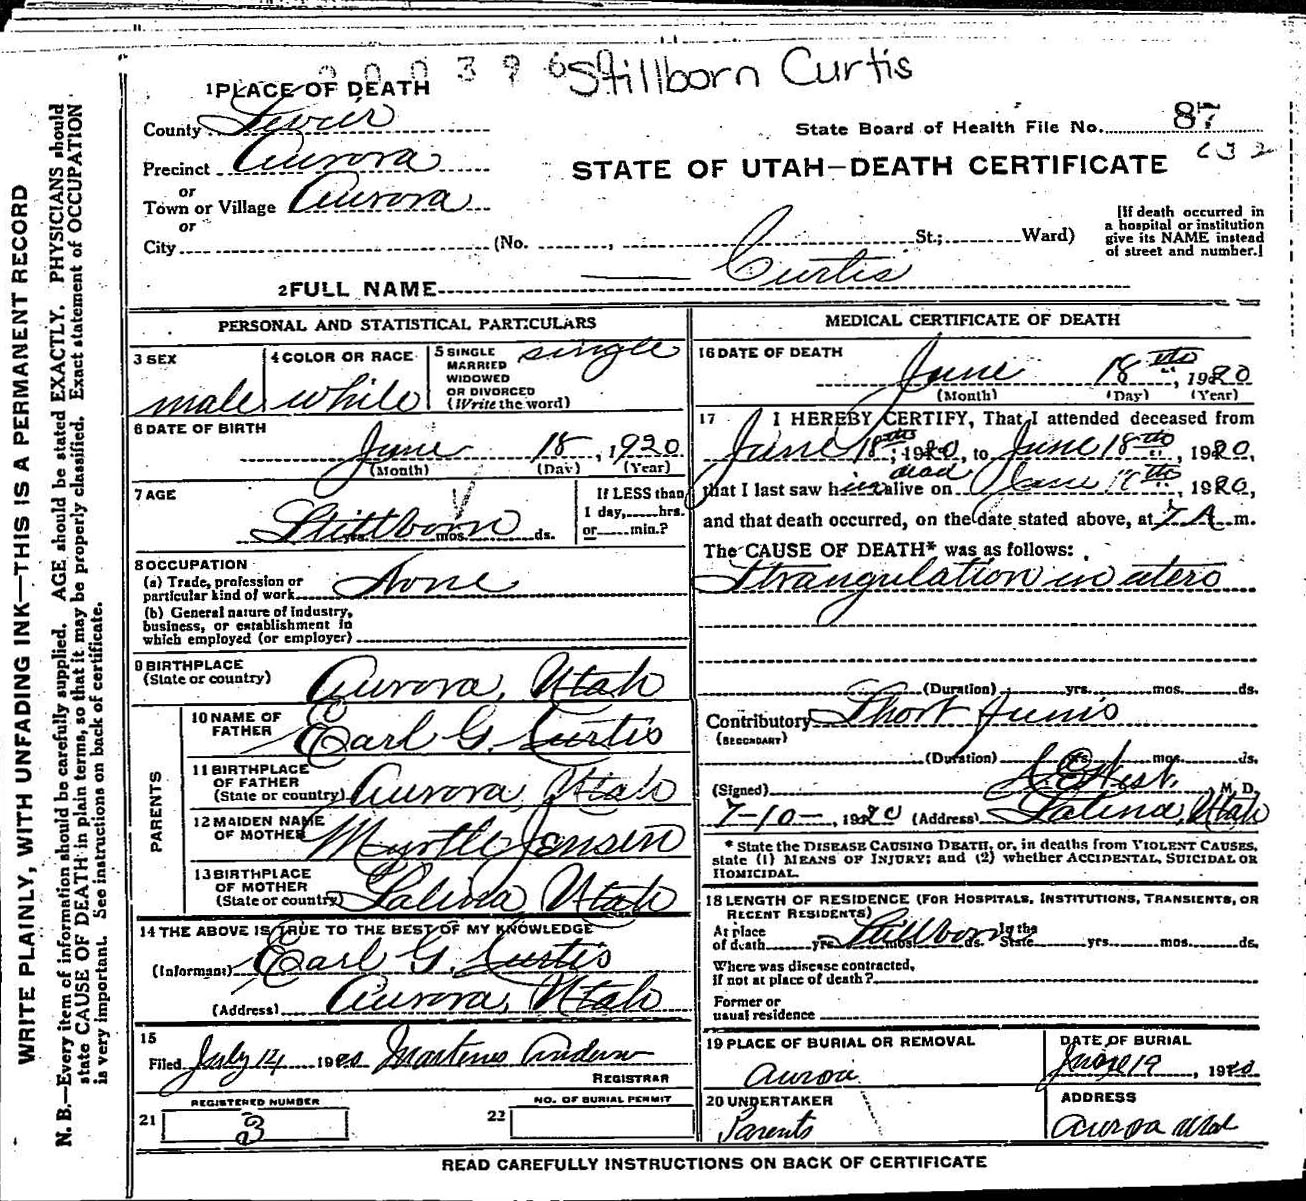 000396 Stillborn Curtis
1 PLACE OF DEATH
County Sevier
State Board of Health File No. 87
632
Precinct Aurora
STATE OF UTAH—DEATH CERTIFICATE
or
Town or Village Aurora
or
City (No. , St.; Ward)
[If death occurred in
a hospital or institution
give its NAME instead
of street and number.]
2 FULL NAME Curtis
PERSONAL AND STATISTICAL PARTICULARS
3 SEX male
4 COLOR OR RACE white
5 SINGLE
MARRIED
WIDOWED
OR DIVORCED
(Write the word) single
6 DATE OF BIRTH
June 18, 1920
(Month) (Day) (Year)
7 AGE
Stillborn
yrs. mos. ds.
If LESS than
1 day, hrs.
or min.?
8 OCCUPATION
(a) Trade, profession or
particular kind of work None
(b) General nature of industry,
business, or establishment in
which employed (or employer)
9 BIRTHPLACE
(State or country) Aurora, Utah
PARENTS
10 NAME OF
FATHER Earl G. Curtis
11 BIRTHPLACE
OF FATHER
(State or country) Aurora, Utah
12 MAIDEN NAME
OF MOTHER Myrtle Jensen
13 BIRTHPLACE
OF MOTHER
(State or country) Salina Utah
14 THE ABOVE IS TRUE TO THE BEST OF MY KNOWLEDGE
(Informant) Earl G. Curtis
(Address) Aurora, Utah
15
Filed July 14 1920
REGISTRAR
REGISTERED NUMBER
21 3
NO. OF BURIAL PERMIT
22
MEDICAL CERTIFICATE OF DEATH
16 DATE OF DEATH
June 18th, 1920
(Month) (Day) (Year)
17 I HEREBY CERTIFY, That I attended deceased from
June 18th, 1920, to June 18th, 1920,
that I last saw him dead alive on June 18th, 1920,
and that death occurred, on the date stated above, at 7 A m.
The CAUSE OF DEATH* was as follows:
Strangulation in utero
(Duration) yrs. mos. ds.
Contributory Short funis
(SECONDARY)
(Duration) yrs. mos. ds.
(Signed) West, M. D.
7-10-, 1920 (Address) Salina, Utah
* State the DISEASE CAUSING DEATH, or, in deaths from VIOLENT CAUSES,
state (1) MEANS OF INJURY; and (2) whether ACCIDENTAL, SUICIDAL OR
HOMICIDAL.
18 LENGTH OF RESIDENCE (FOR HOSPITALS, INSTITUTIONS, TRANSIENTS, OR
RECENT RESIDENTS)
At place
of death yrs. mos. ds. Stillborn In the
State yrs. mos. ds.
Where was disease contracted,
if not at place of death?
Former or
usual residence
19 PLACE OF BURIAL OR REMOVAL
Aurora
DATE OF BURIAL
June 19, 1920
20 UNDERTAKER
Parents
ADDRESS
Aurora Utah
READ CAREFULLY INSTRUCTIONS ON BACK OF CERTIFICATE
WRITE PLAINLY, WITH UNFADING INK—THIS IS A PERMANENT RECORD
N. B.—Every item of information should be carefully supplied. AGE should be stated EXACTLY. PHYSICIANS should
state CAUSE OF DEATH in plain terms, so that it may be properly classified. Exact statement of OCCUPATION
is very important. See instructions on back of certificate.